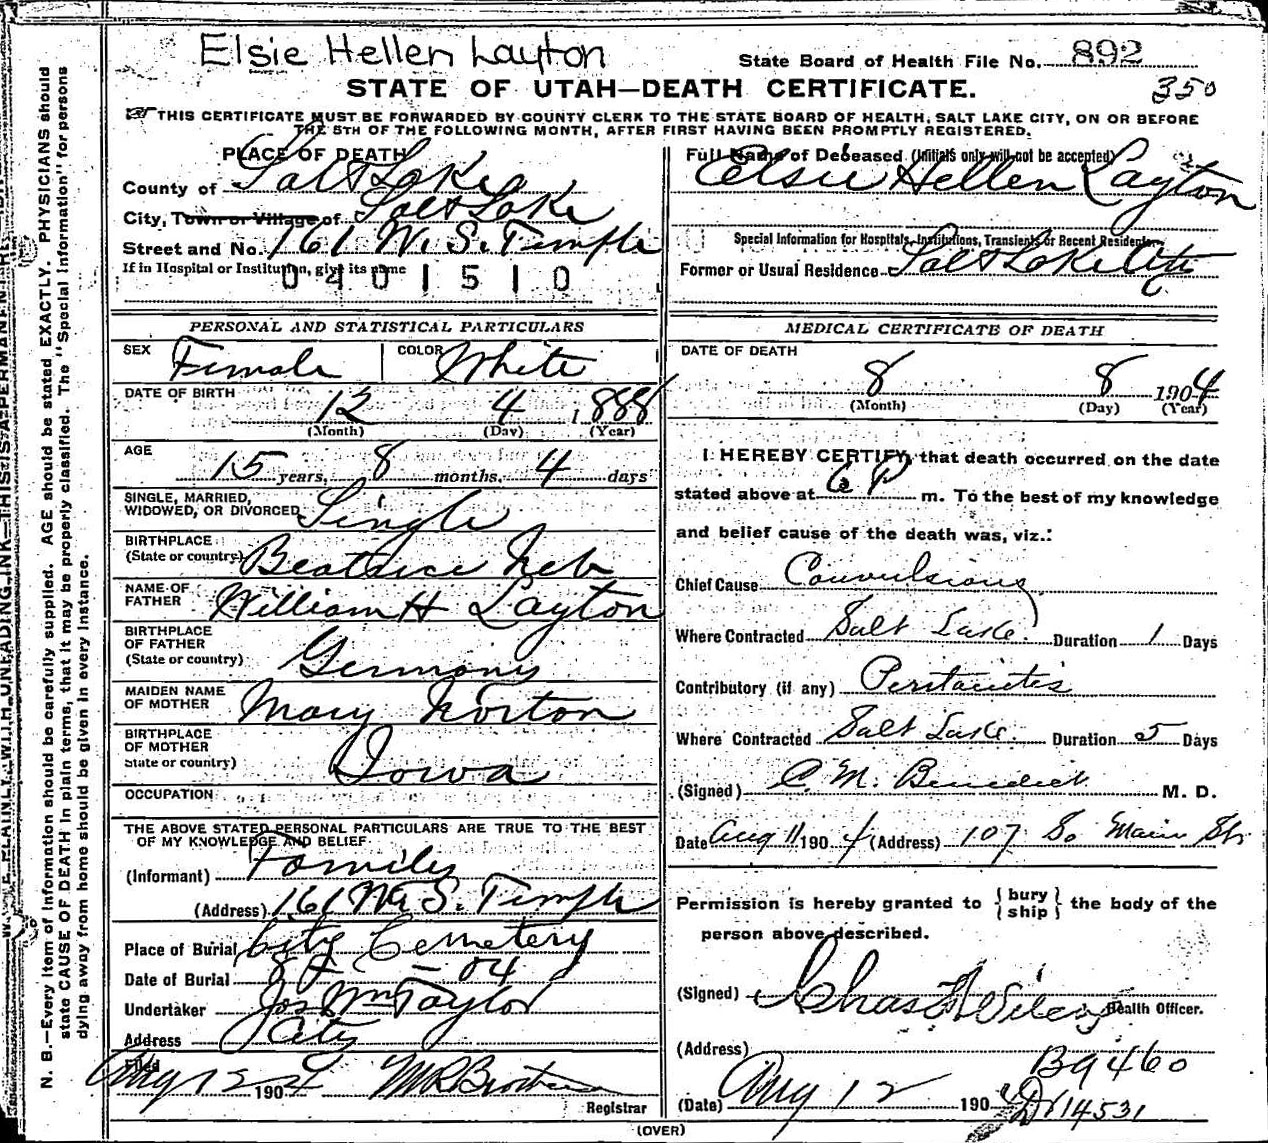 Elsie Hellen Layton
State Board of Health File No. 892
STATE OF UTAH—DEATH CERTIFICATE.
350
THIS CERTIFICATE MUST BE FORWARDED BY COUNTY CLERK TO THE STATE BOARD OF HEALTH, SALT LAKE CITY, ON OR BEFORE
THE 5TH OF THE FOLLOWING MONTH, AFTER FIRST HAVING BEEN PROMPTLY REGISTERED.
PLACE OF DEATH
County of Salt Lake
City, Town or Village of Salt Lake
Street and No. 161 W. S. Temple
If in Hospital or Institution, give its name
0401510
Full Name of Deceased (Initials only will not be accepted)
Elsie Hellen Layton
Special Information for Hospitals, Institutions, Transients or Recent Residents
Former or Usual Residence Salt Lake City
PERSONAL AND STATISTICAL PARTICULARS
SEX Female COLOR White
DATE OF BIRTH 12 4 1888
(Month) (Day) (Year)
AGE
15 years, 8 months, 4 days
SINGLE, MARRIED,
WIDOWED, OR DIVORCED Single
BIRTHPLACE
(State or country) Beatrice Neb
NAME OF
FATHER William H Layton
BIRTHPLACE
OF FATHER
(State or country) Germany
MAIDEN NAME
OF MOTHER Mary Norton
BIRTHPLACE
OF MOTHER
State or country) Iowa
OCCUPATION
THE ABOVE STATED PERSONAL PARTICULARS ARE TRUE TO THE BEST
OF MY KNOWLEDGE AND BELIEF
(Informant) Family
(Address) 161 W S. Temple
Place of Burial City Cemetery
Date of Burial 8 - 04
Undertaker Jos Wm Taylor
Address City
Filed
Aug 12 1904
Registrar
MEDICAL CERTIFICATE OF DEATH
DATE OF DEATH
8 8 1904
(Month) (Day) (Year)
I HEREBY CERTIFY, that death occurred on the date
stated above at 6 P m. To the best of my knowledge
and belief cause of the death was, viz.:
Chief Cause Convulsions
Where Contracted Salt Lake. Duration 1 Days
Contributory (if any) Peritonitis
Where Contracted Salt Lake. Duration 5 Days
(Signed) C. M. Benedict M. D.
Date Aug 11 1904 (Address) 107 So Main St.
Permission is hereby granted to {bury
ship} the body of the
person above described.
(Signed) Chas Health Officer.
(Address)
B9460
(Date) Aug 12 190
D 14531
(OVER)
N. B.—Every item of information should be carefully supplied. AGE should be stated EXACTLY. PHYSICIANS should
state CAUSE OF DEATH in plain terms, that it may be properly classified. The "Special Information" for persons
dying away from home should be given in every instance.
WRITE PLAINLY WITH UNFADING INK—THIS IS A PERMANENT